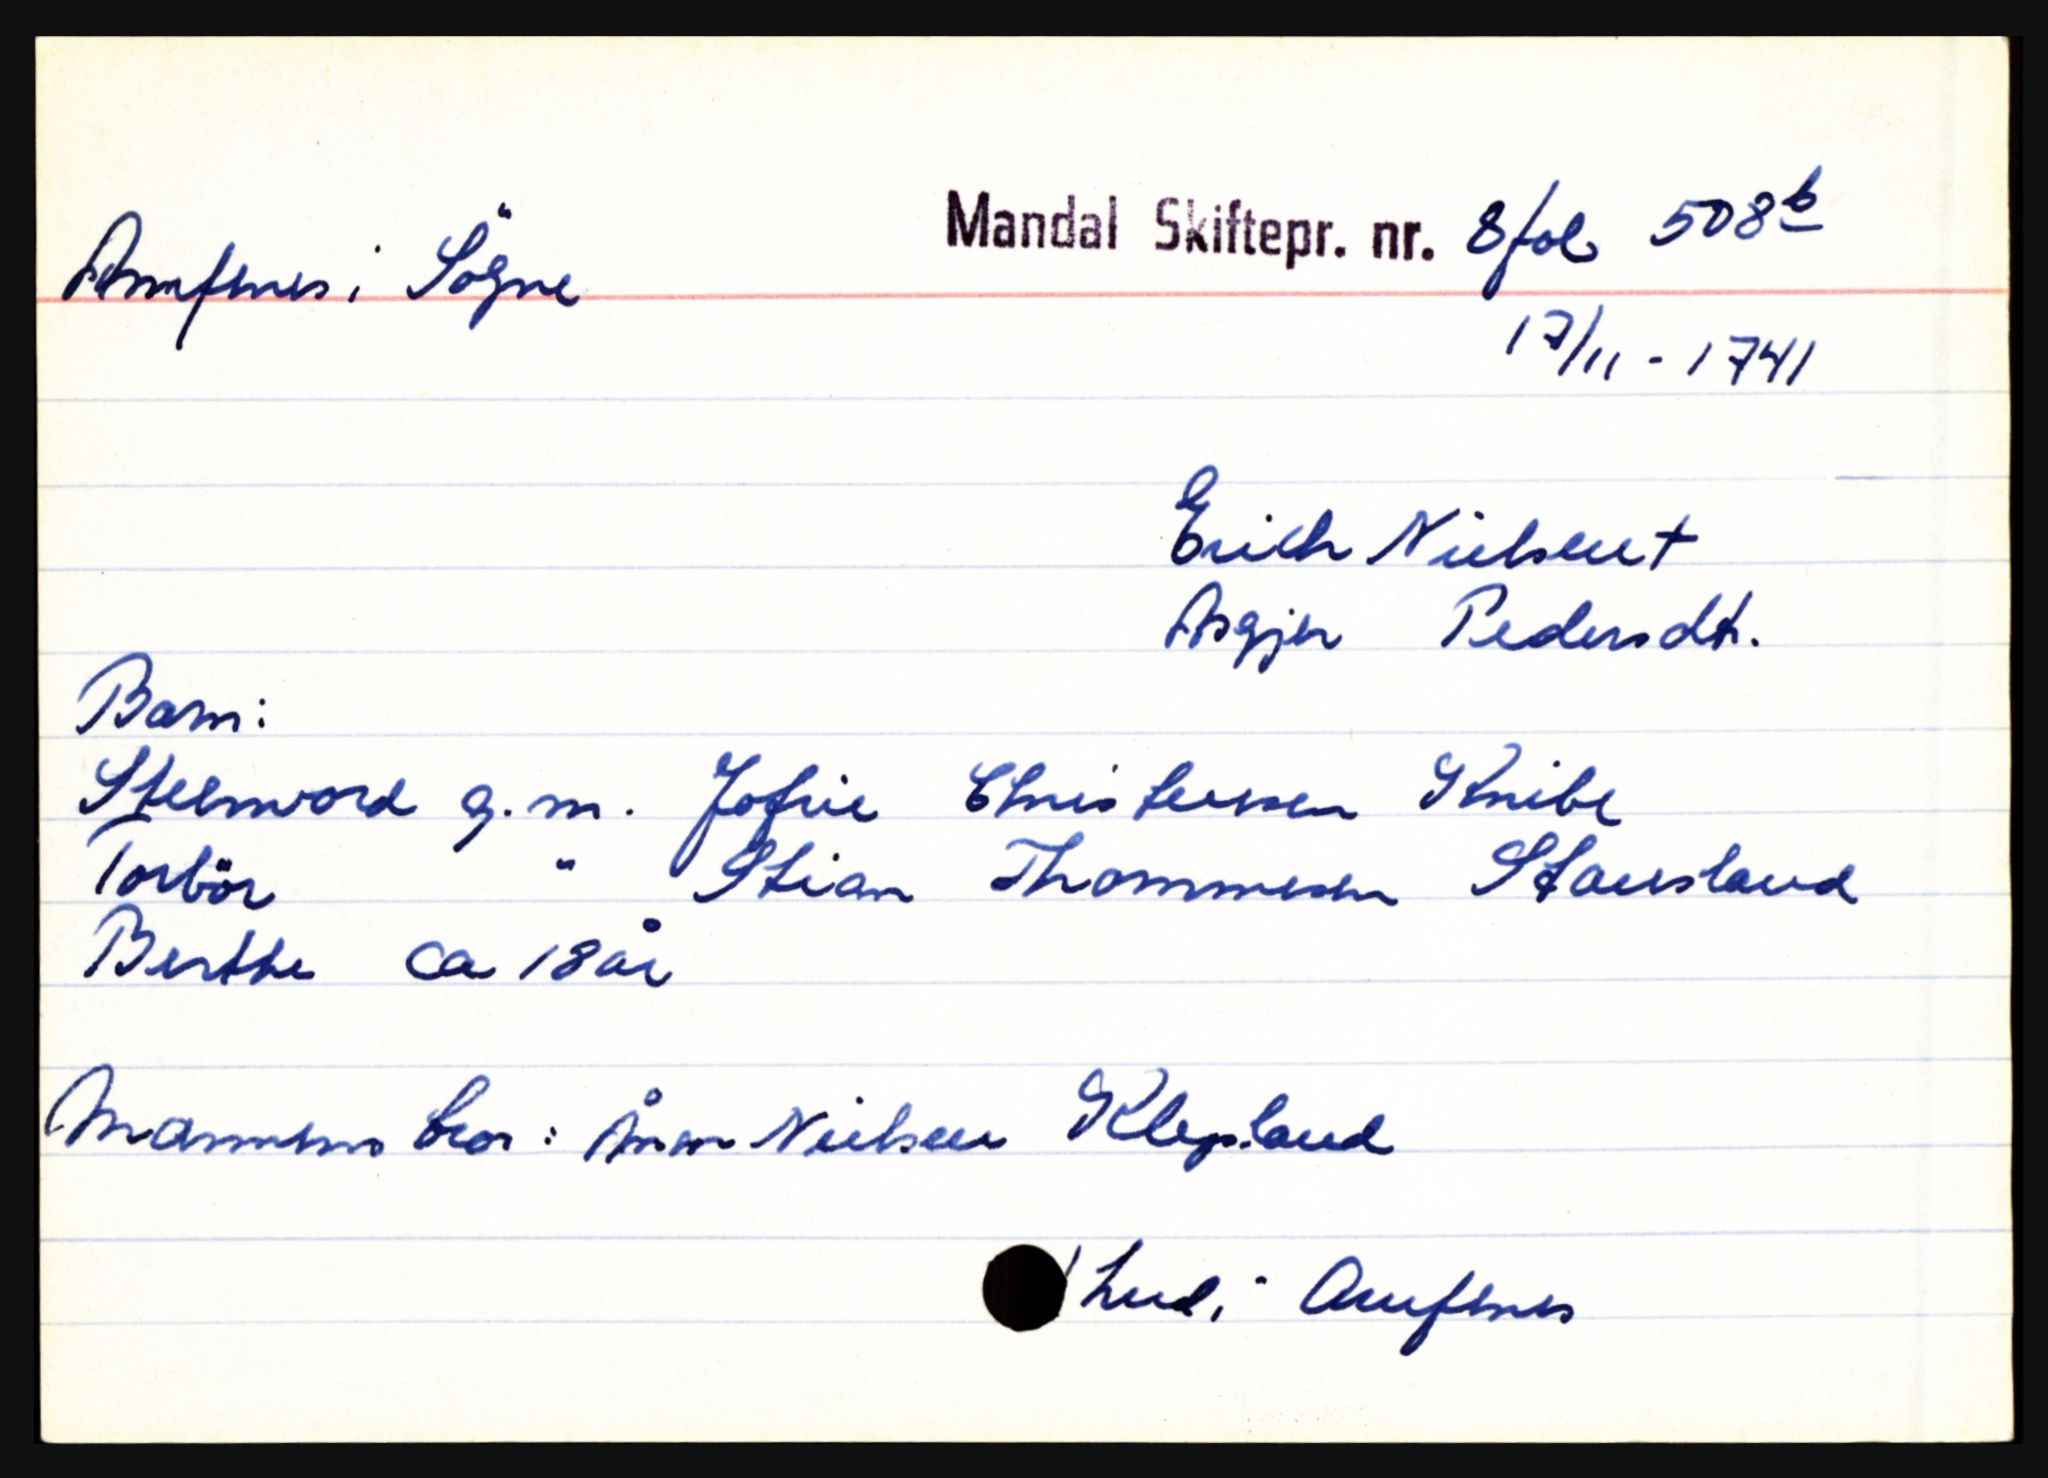 Amfenes i Sögne
Mandal Skiftepr. nr. 8 fol 508 b
17/11 - 1741
Erich Nielsen +
Asgjer Pedersdt.
Barn:
Stenword g. m. Jofrie Christensen Knibe
Torbör " Stian Thommesen Stausland
Berthe ca 18 år
Mannens bror: Ånen Nielsen Klepland
1 hud i Amfenes